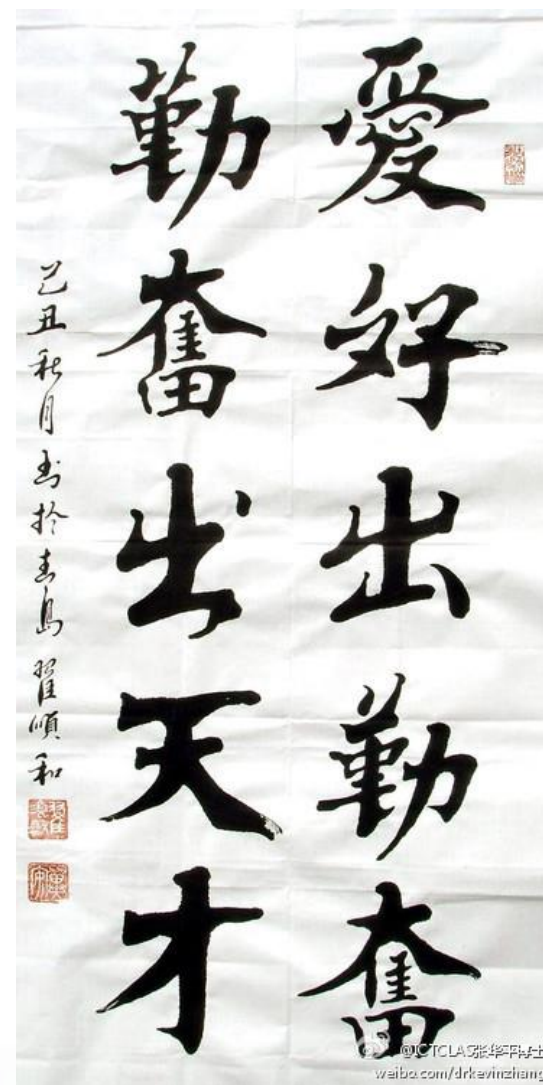 愛好出勤奮
勤奮出天才
己丑秋月書於青島翟順和
@ICTCLAS张华平博士
weibo.com/drkevinzhang